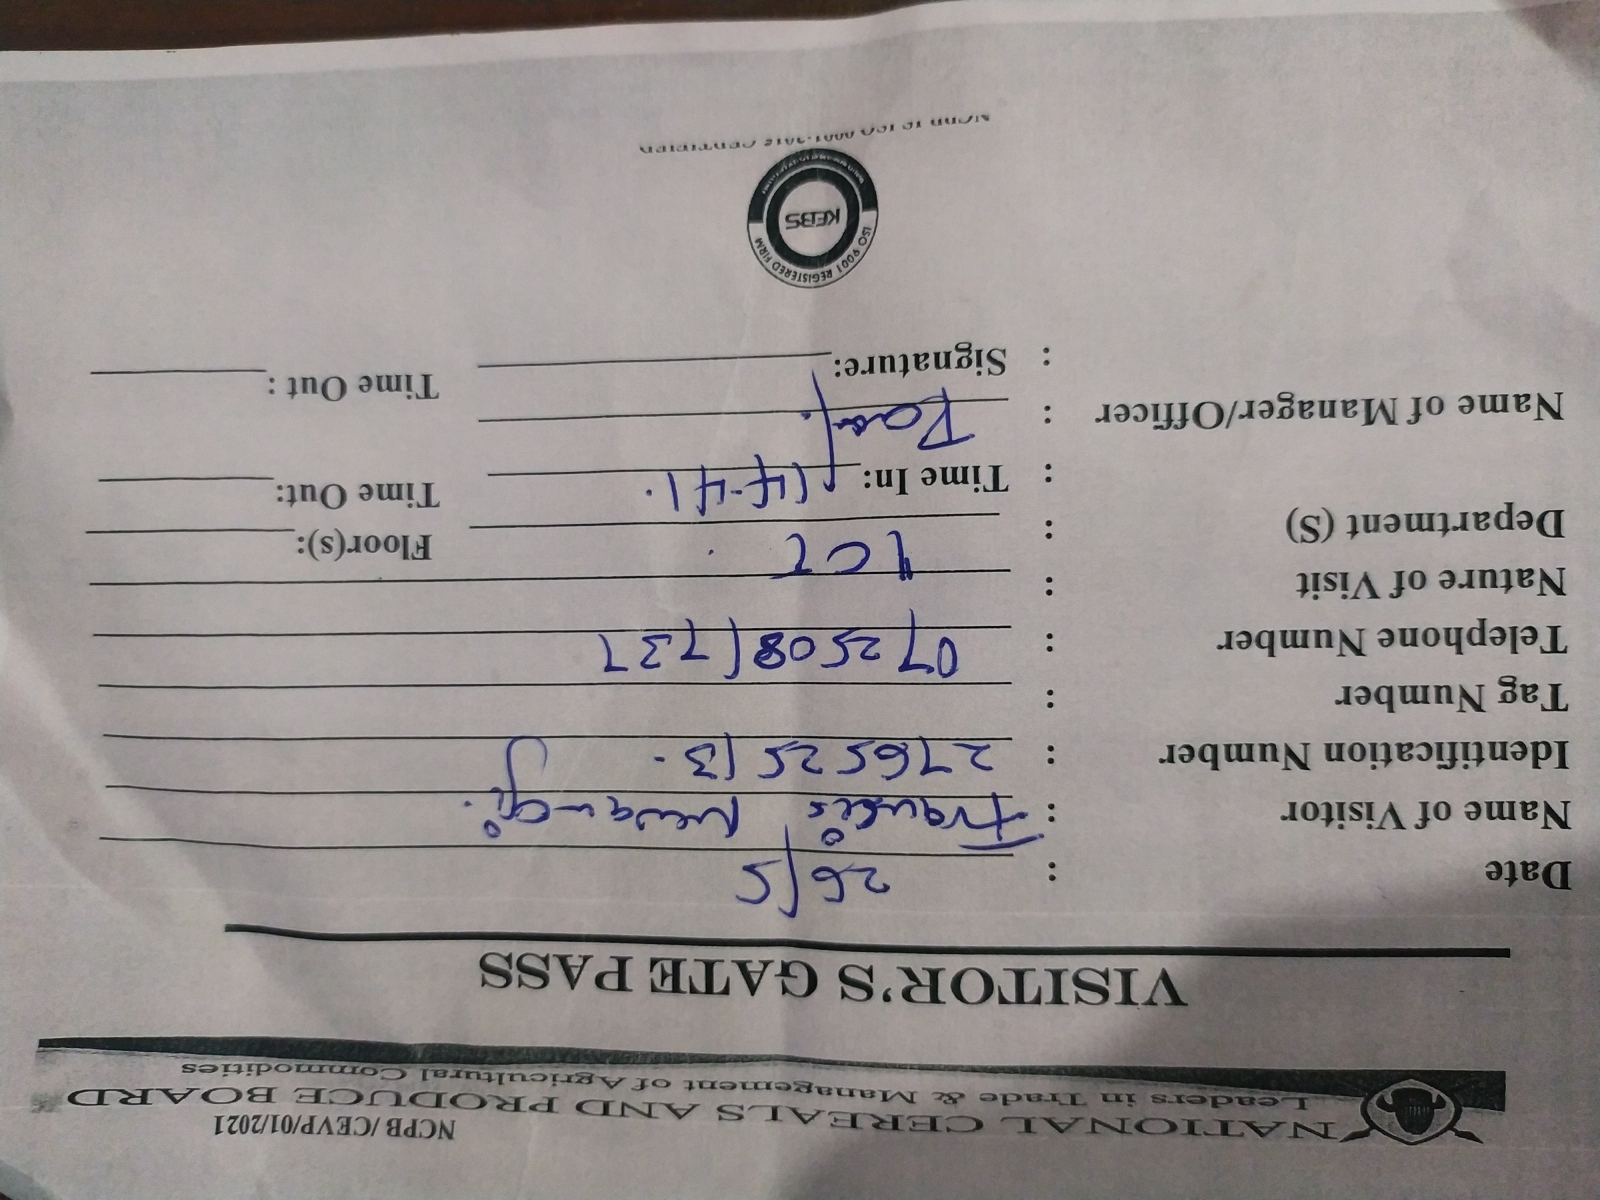 NCPB /CEVP/01/2021
NATIONAL CEREALS AND PRODUCE BOARD
Leaders in Trade & Management of Agricultural Commodities
VISITOR'S GATE PASS
Date : 26/5
Name of Visitor : Francis Mwangi.
Identification Number : 27652513.
Tag Number :
Telephone Number : 0725081737
Nature of Visit : ICT
Department (S) : Floor(s):
: Time In: 14-41. Time Out:
Name of Manager/Officer :
: Signature: Time Out :
ISO 9001 REGISTERED FIRM
KEBS
NCPB IS ISO 9001:2015 CERTIFIED